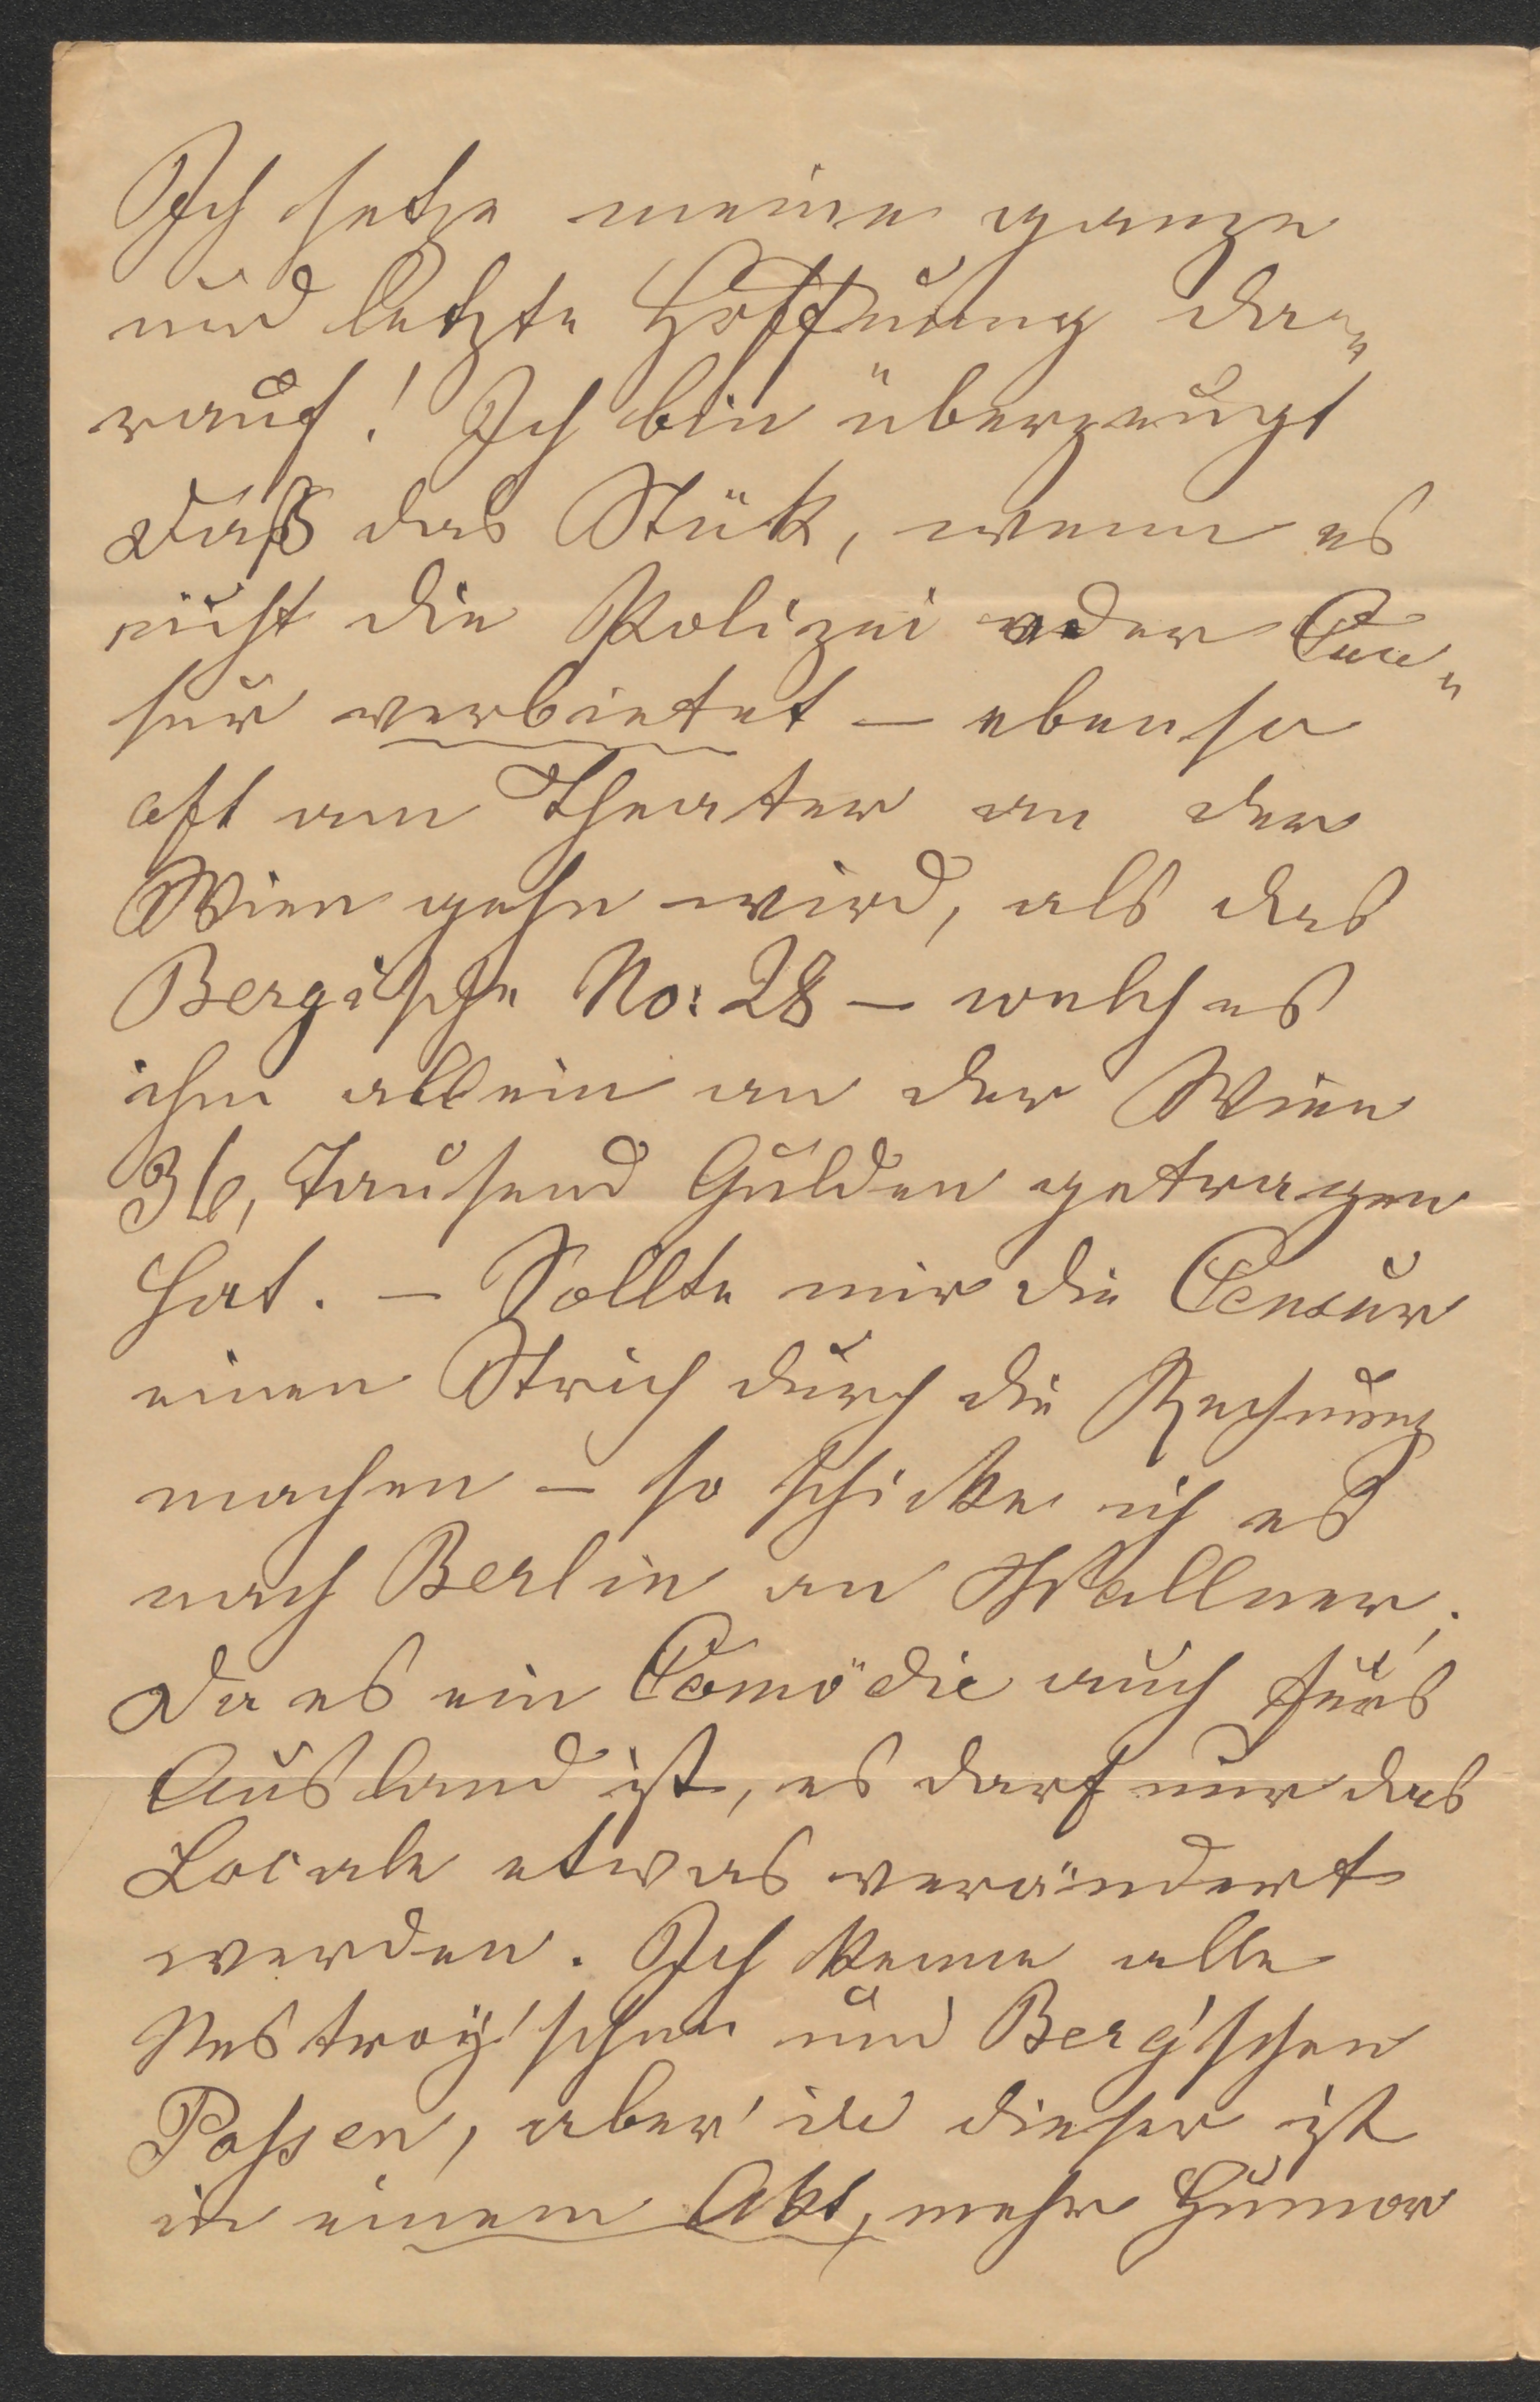 Ich setze meine ganze
und letzte Hoffnung da„
rauf! Ich bin überzeugt
daß das Stük, wenn es
nicht die Polizei oder Cen„
sur verbietet — ebenso
oft am Theater an der
Wien gehn wird, als das
Bergische No: 28 — welches
ihm allein an der Wien
36, Tausend Gulden getragen
hat. — Sollte mir die Censur
einen Strich durch die Rechnung
machen — so schicke ich es
nach Berlin an Wallner,
da es ein Comödie auch fürs
Ausland ist, es darf nur das
Locale etwas verändert
werden. Ich kenne alle
Nestroy'schen und Berg'schen
Possen, aber in dieser ist
in einem Akt, mehr Humor